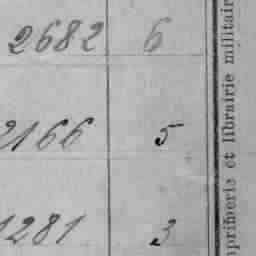 2682 6
2166 5
1281 3
Imprimeris et librairie militair